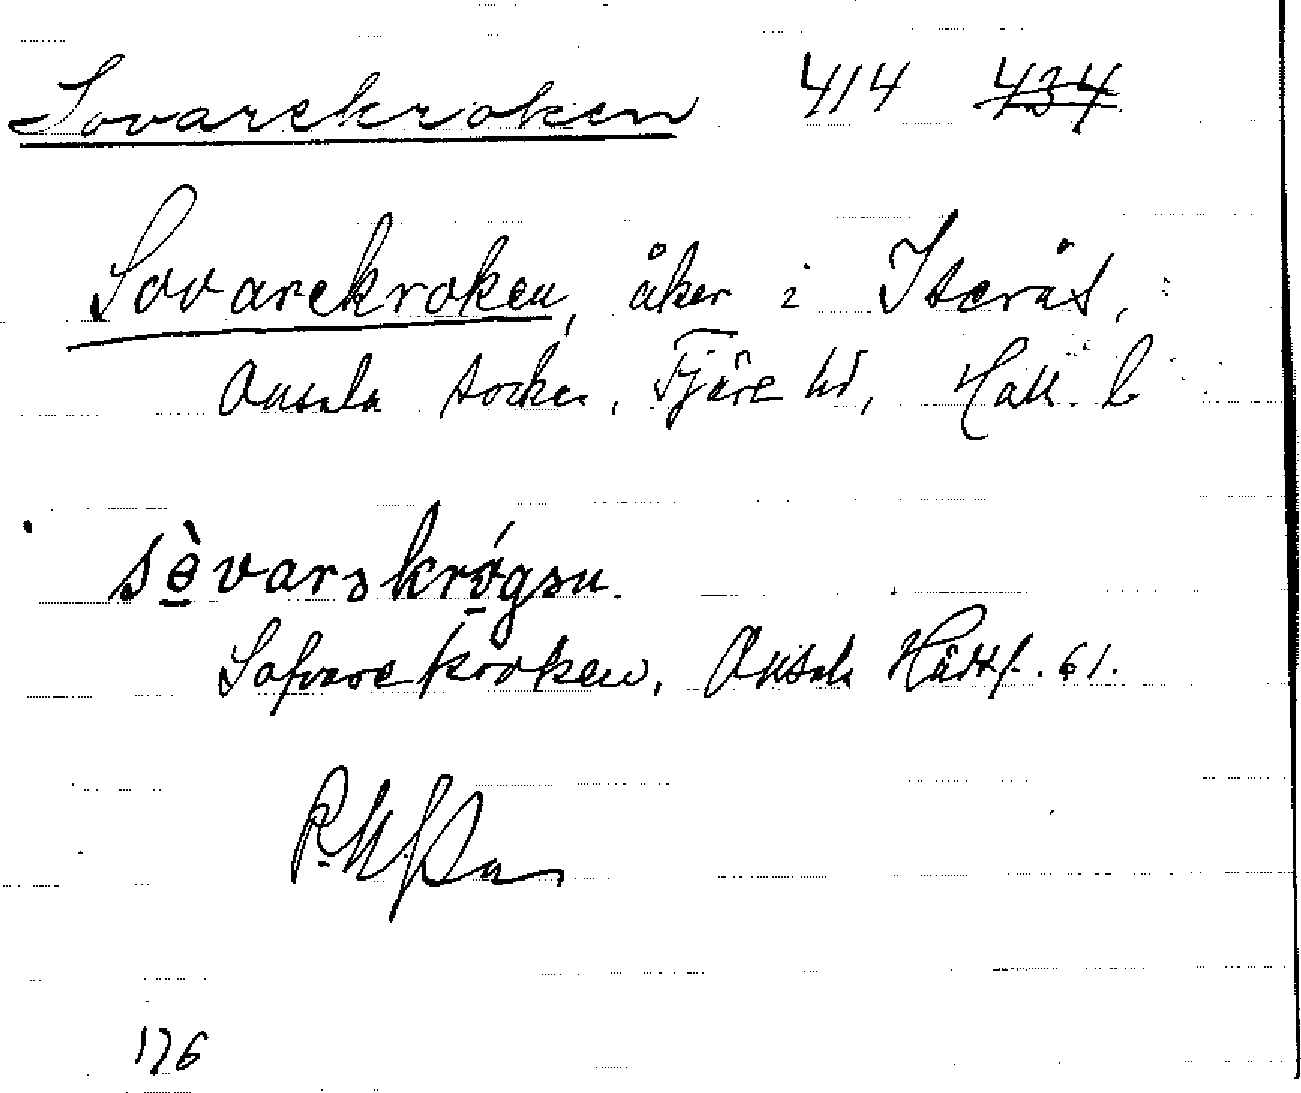 Sovarekroken 414 434
Sovarekroken, åker i Iserås,
Onsala socken, Fjäre hd, Hall. l
sèvarskrógen.
Safvarekroken, Onsala Hdtkf. 61.
176